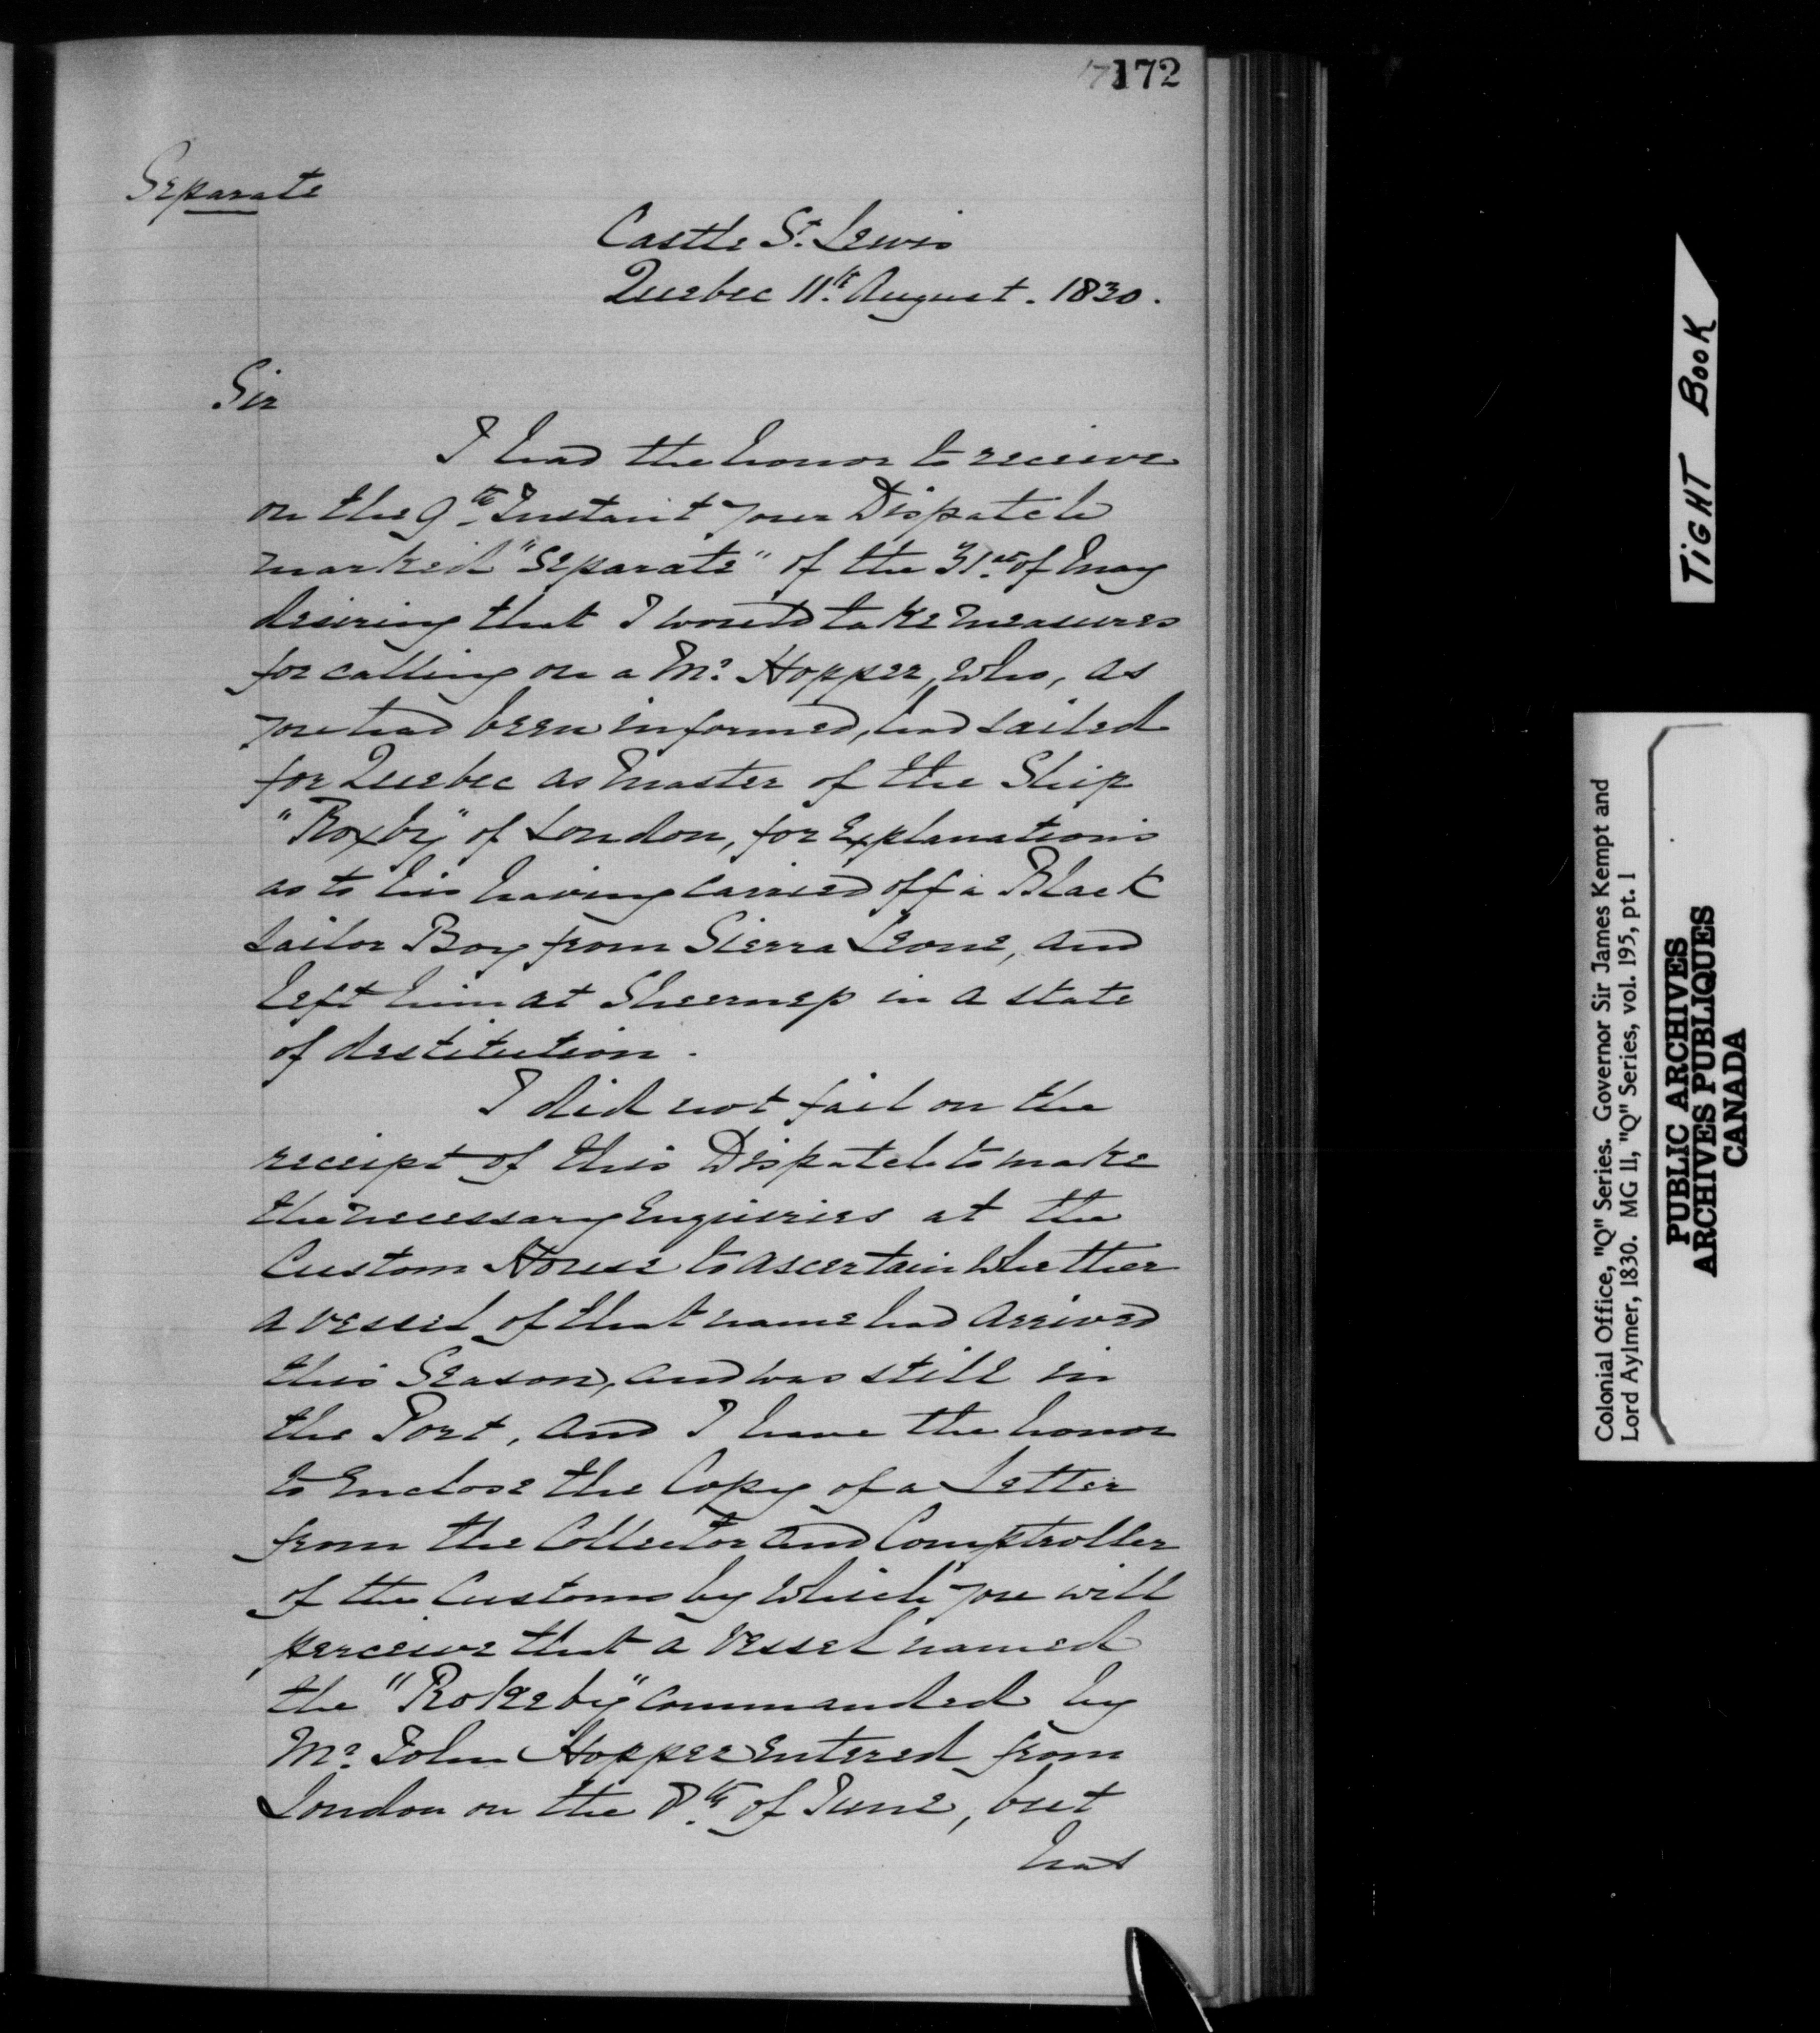 172
Separate
Castle St. Lewis
Quebec 11th August. 1830.
Sir
I had the honor to receive
on the 9th Instant your Dispatch
marked "Separate" of the 31st of May
desiring that I would take measures
for calling on a Mr Hopper, who, as
you had been informed, had sailed
for Quebec as Master of the Ship
"Roxby" of London, for Explanations
as to his having carried off a Black
Sailor Boy from Sierra Leone, and
left him at Sheerness in a state
of destitution.
I did not fail on the
receipt of this Dispatch to make
the necessary Enquiries at the
Custom House to ascertain Whether
a vessel of that name had arrived
this Season, and was still in
the Port, and I have the honor
to Enclose the Copy of a Letter
from the Collector and Comptroller
of the Customs by which you will
perceive that a Vessel named
the "Rokeby" commanded by
Mr John Hopper Entered from
London on the 8th of June, but
has
TIGHT BOOK
Colonial Office, "Q" Series. Governor Sir James Kempt and
Lord Aylmer, 1830. MG 11, "Q" Series, vol. 195, pt. 1
PUBLIC ARCHIVES
ARCHIVES PUBLIQUES
CANADA